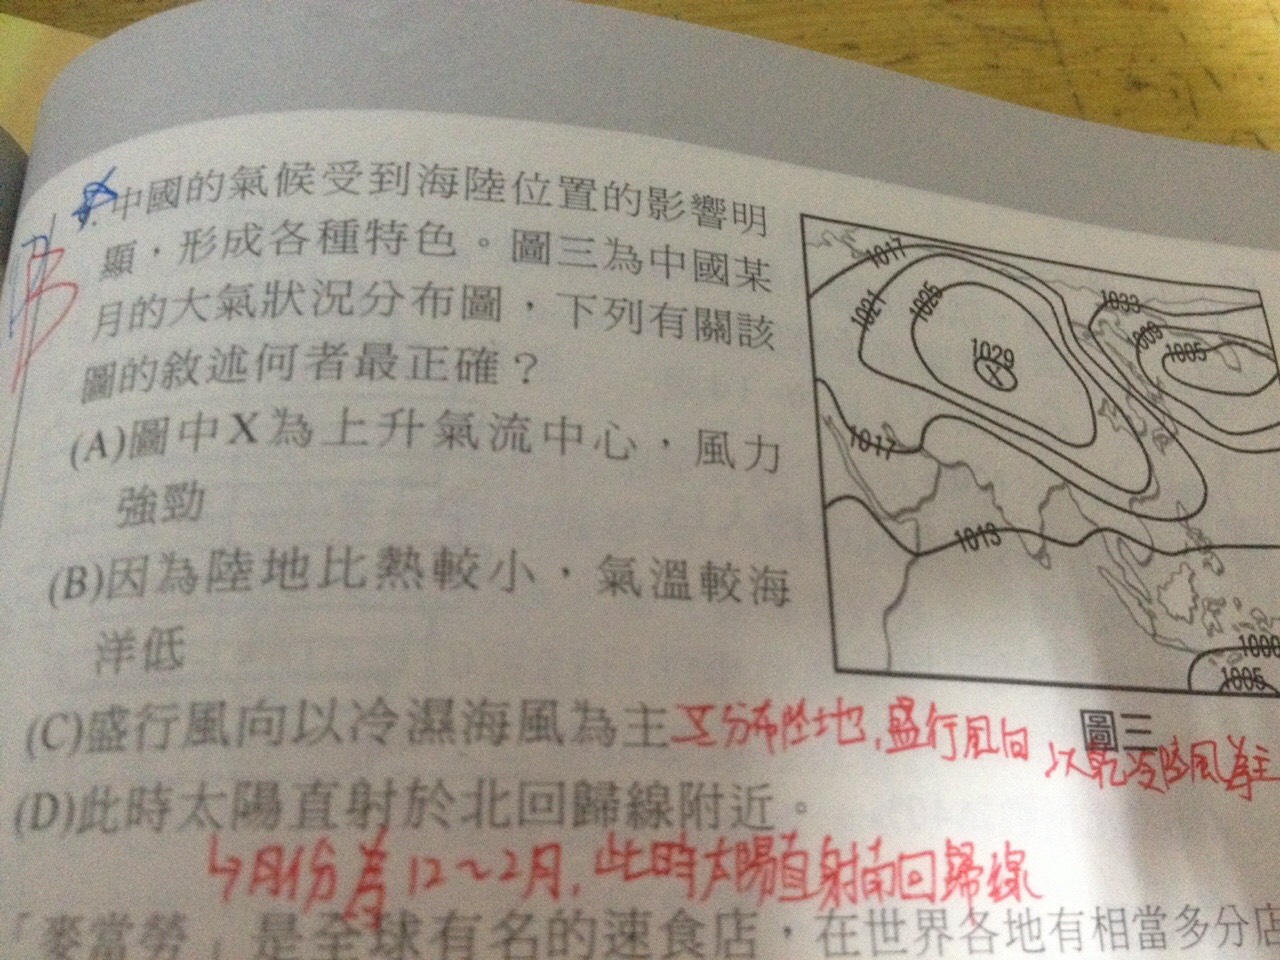 中國的氣候受到海陸位置的影響明
顯，形成各種特色。圖三為中國某
月的大氣狀況分布圖，下列有關該
圖的敘述何者最正確？
(A)圖中X為上升氣流中心，風力
強勁
(B)因為陸地比熱較小，氣溫較海
洋低
(C)盛行風向以冷濕海風為主
分布陸地，盛行風向
以乾冷陸風為主
(D)此時太陽直射於北回歸線附近。
↳月份為12~2月，此時太陽直射南回歸線
「麥當勞」是全球有名的速食店，在世界各地有相當多分店
B
1017
1021
1025
1029
X
1033
1009
1005
1017
1013
1000
1005
圖三